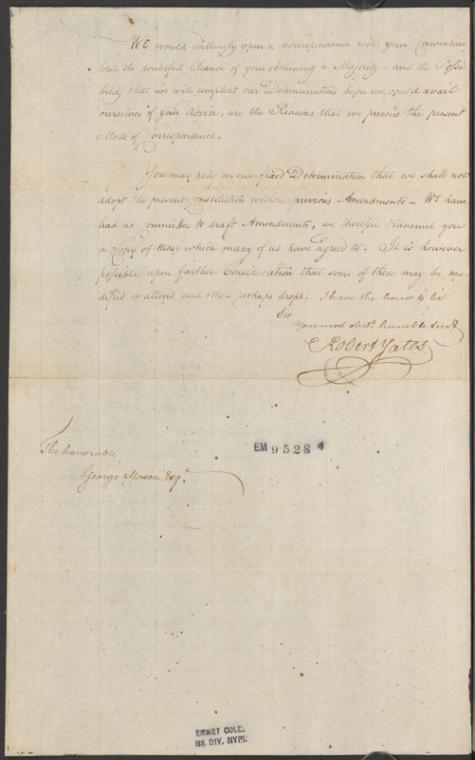 We would willingly open a Correspondence with your Convention
but the doubtful Chance of your obtaining a Majority - and the Possi
bility that we will compleat our Determinations before we could avail
ourselves of your Advice, are the Reasons that we pursue the present
Mode of Correspondence.
You may rely on our fixed Determination that we shall not
adopt the present Constitution without previous Amendments - We have
had no Committee to draft Amendments, we therefore transmit you
a Copy of those which many of us have agreed to. It is however
possible upon farther Consideration that some of these may be mo
dified or altered and others perhaps dropt. I have the honor to be
Sir
Your most obedt. humble Servt
Robert Yates
The honorable
George Mason Esqr.
EM 9528
EMMET COLL.
MS DIV. NYPL